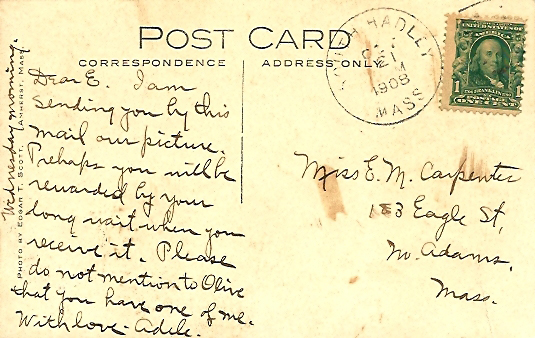 POST CARD
CORRESPONDENCE
ADDRESS ONLY
HADLEY
21
1908
MASS
UNITED STATES OF AMERICA
1
1
FRANKLIN
ONE CENT
PHOTO BY EDGAR T. SCOTT, AMHERST, MASS.
Wednesday morning.
Dear E. I am
sending you by this
mail our picture.
Prehaps you will be
rewarded by your
long wait when you
receive it. Please
do not mention to Olive
that you have one of me.
With love - Adele.
Miss E. M. Carpenter
183 Eagle St,
No. Adams,
Mass.